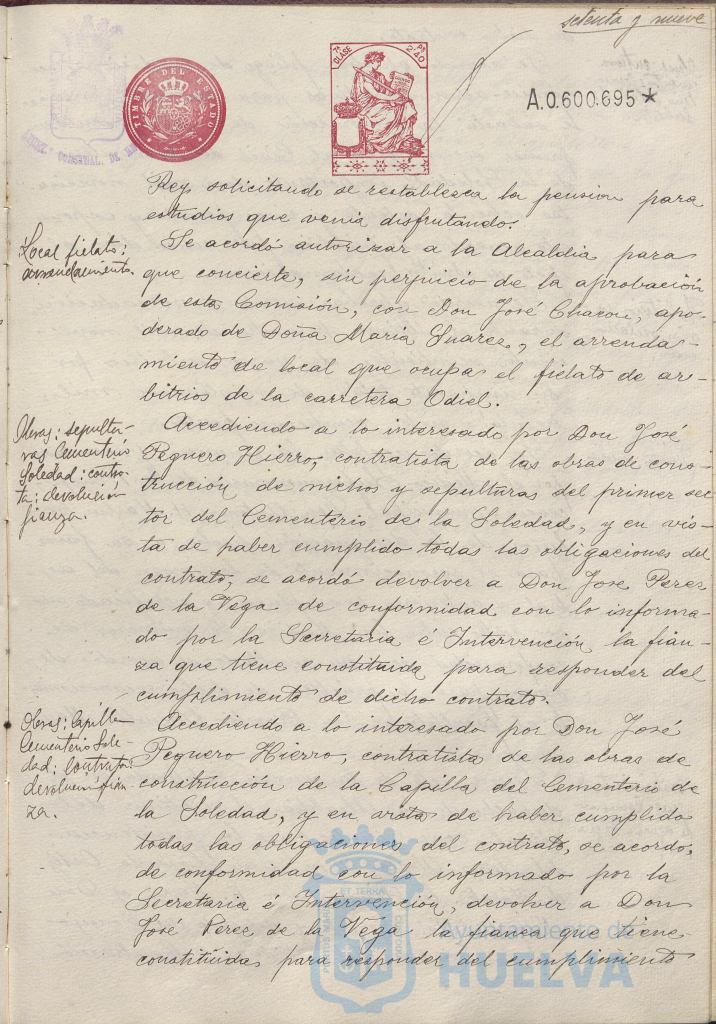 setenta y nueve
TIMBRE DEL ESTADO
7ª CLASE
Pts 2'40
A.0.600.695*
Rey, solicitando se restablezca la pension para
estudios que venia disfrutando.
Local fielato:
arrendamiento.
Se acordó autorizar a la Alcaldia para
que concierte, sin perjuicio de la aprobación
de esta Comisión, con Don José Chacon, apo-
derado de Doña Maria Suarez, el arrenda-
miento de local que ocupa el fielato de ar-
bitrios de la carretera Odiel.
Obras: sepultu-
ras Cementerio
Soledad: contra-
ta: devolución
fianza.
Accediendo a lo interesado por Don José
Peguero Hierro, contratista de las obras de cons-
trucción de nichos y sepulturas del primer sec-
tor del Cementerio de la Soledad, y en vis-
ta de haber cumplido todas las obligaciones del
contrato, se acordó devolver a Don José Perez
de la Vega de conformidad con lo informa-
do por la Secretaria é Intervención la fian-
za que tiene constituida para responder del
cumplimiento de dicho contrato.
Obras: Capilla
Cementerio Sole-
dad: Contrata:
devolución fian-
za.
Accediendo a lo interesado por Don José
Peguero Hierro, contratista de las obras de
construcción de la Capilla del Cementerio de
la Soledad, y en vista de haber cumplido
todas las obligaciones del contrato, se acordo,
de conformidad con lo informado por la
Secretaria é Intervención, devolver a Don
José Perez de la Vega la fianza que tiene
constituida para responder del cumplimiento
Ayuntamiento de
HUELVA